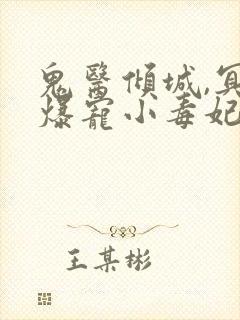 鬼醫傾城,冥
爆寵小毒妃
王某彬